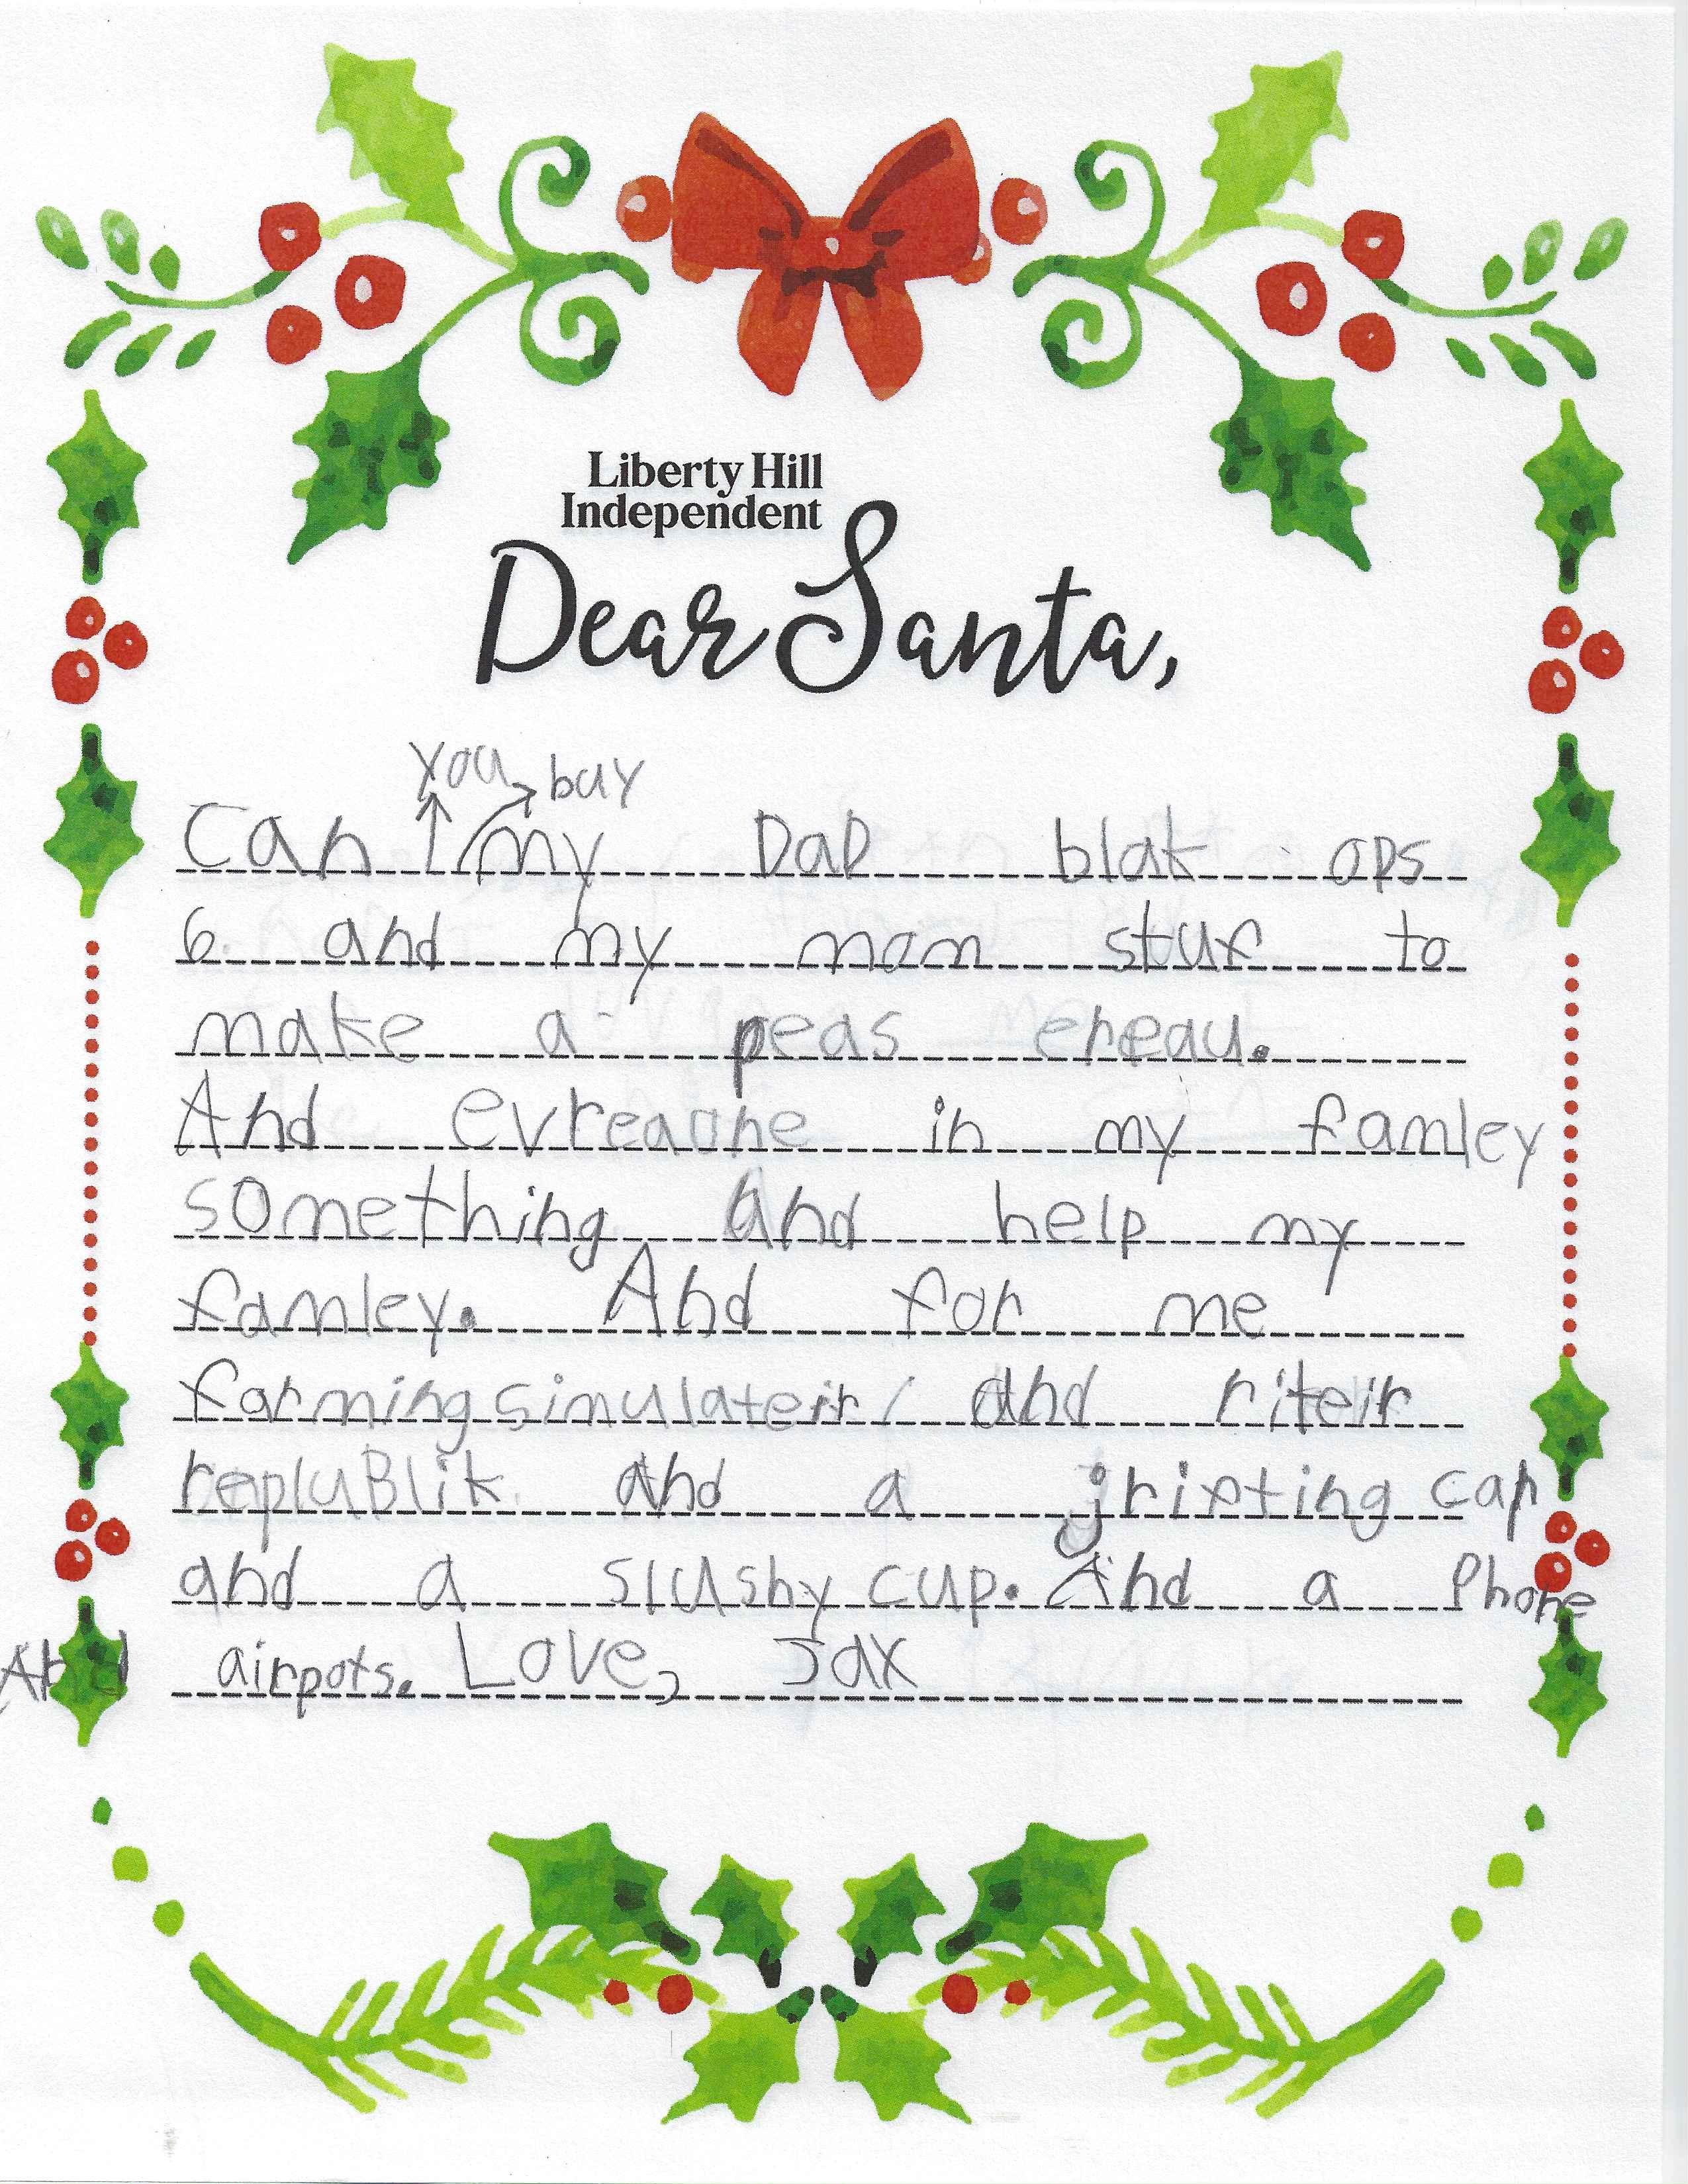 Liberty Hill
Independent
Dear Santa,
you buy
Can my DaD blak ops
6 and my mom stuf to
make a peas ereau.
And evreaone in my famley
something and help my
famley. And for me
farming simulateir and riteir
repluBlik and a jrifting car
and a slushy cup. And a Phone
And airpots. Love, Jax